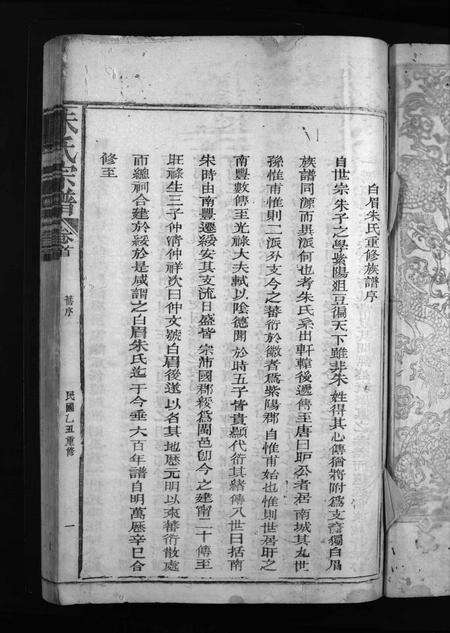 白眉朱氏重修族譜序
自世宗朱子之學紫陽俎豆徧天下雖非朱姓得其心傳猶將附為支裔獨白眉
族譜同源而異派何也考朱氏系出軒轅後遞傳至唐曰 公者居南城其九世
孫惟甫惟則二派分支今之蕃衍於徽者為紫陽郡自惟甫始也惟則世居旴之
南豐數傳至光祿大夫軾以陰德聞於時五子皆貴顯代衍其緒傳八世曰括南
宋時由南豐遷綏安其支流日盛皆宗沛國郡綏為閩邑卽今之建甯二十傳至
旺祿生三子仲清仲祥次曰仲文號白眉後遂以名其地歷元明以來蕃衍散處
而總祠合建於綏於是咸謂之白眉朱氏迄于今垂六百年譜自明萬歷辛巳合
修至
朱氏宗譜
卷首
舊序
民國乙丑重修
一